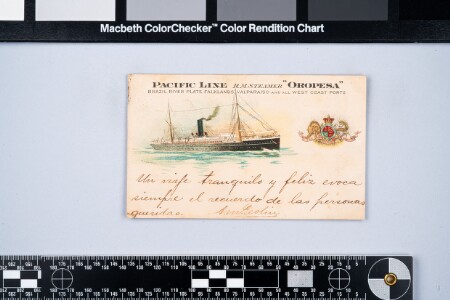 Macbeth ColorChecker™ Color Rendition Chart
PACIFIC LINE R.M. STEAMER "OROPESA"
BRAZIL, RIVER PLATE, FALKLANDS, VALPARAISO AND ALL WEST COAST PORTS.
Un viaje tranquilo y feliz evoca
siempre el recuerdo de las personas
queridas.